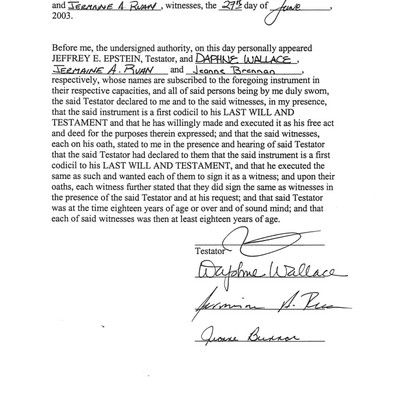 and JERMAINE A. RUAN, witnesses, the 27th day of June,
2003.
Before me, the undersigned authority, on this day personally appeared
JEFFREY E. EPSTEIN, Testator, and DAPHNE WALLACE,
JERMAINE A. RUAN and Jeanne Brennan,
respectively, whose names are subscribed to the foregoing instrument in
their respective capacities, and all of said persons being by me duly sworn,
the said Testator declared to me and to the said witnesses, in my presence,
that the said instrument is a first codicil to his LAST WILL AND
TESTAMENT and that he has willingly made and executed it as his free act
and deed for the purposes therein expressed; and that the said witnesses,
each on his oath, stated to me in the presence and hearing of said Testator
that the said Testator had declared to them that the said instrument is a first
codicil to his LAST WILL AND TESTAMENT, and that he executed the
same as such and wanted each of them to sign it as a witness; and upon their
oaths, each witness further stated that they did sign the same as witnesses in
the presence of the said Testator and at his request; and that said Testator
was at the time eighteen years of age or over and of sound mind; and that
each of said witnesses was then at least eighteen years of age.
Testator
Daphne Wallace
Jermaine A. Ruan
Jeanne Brennan